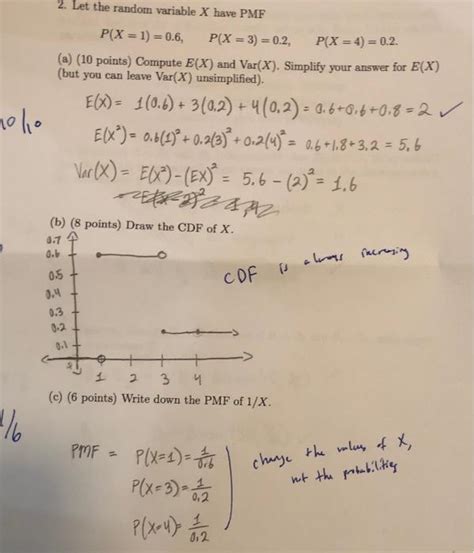 2. Let the random variable X have PMF
P(X = 1) = 0.6, P(X = 3) = 0.2, P(X = 4) = 0.2.
(a) (10 points) Compute E(X) and Var(X). Simplify your answer for E(X)
(but you can leave Var(X) unsimplified).
E(X) = 1(0.6) + 3(0.2) + 4(0.2) = 0.6+0.6+0.8 = 2 ✓
10/10
E(X²) = 0.6(1)² + 0.2(3)² + 0.2(4)² = 0.6+1.8+3.2 = 5.6
Var(X) = E(X²)-(EX)² = 5.6 - (2)² = 1.6
(b) (8 points) Draw the CDF of X.
0.7
0.6
CDF is always increasing
0.5
0.4
0.3
0.2
0.1
1 2 3 4
(c) (6 points) Write down the PMF of 1/X.
/6
PMF = P(X=1) = 1/0.6
change the values of X,
not the probabilities
P(X=3) = 1/0.2
P(X=4) = 1/0.2